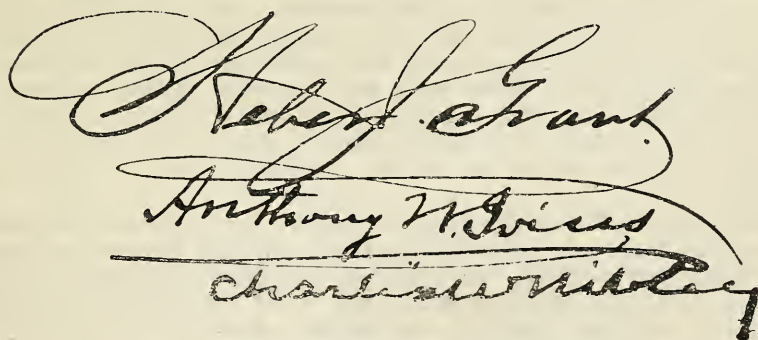 Heber J. Grant
Anthony W. Ivins
Charles W Nibley